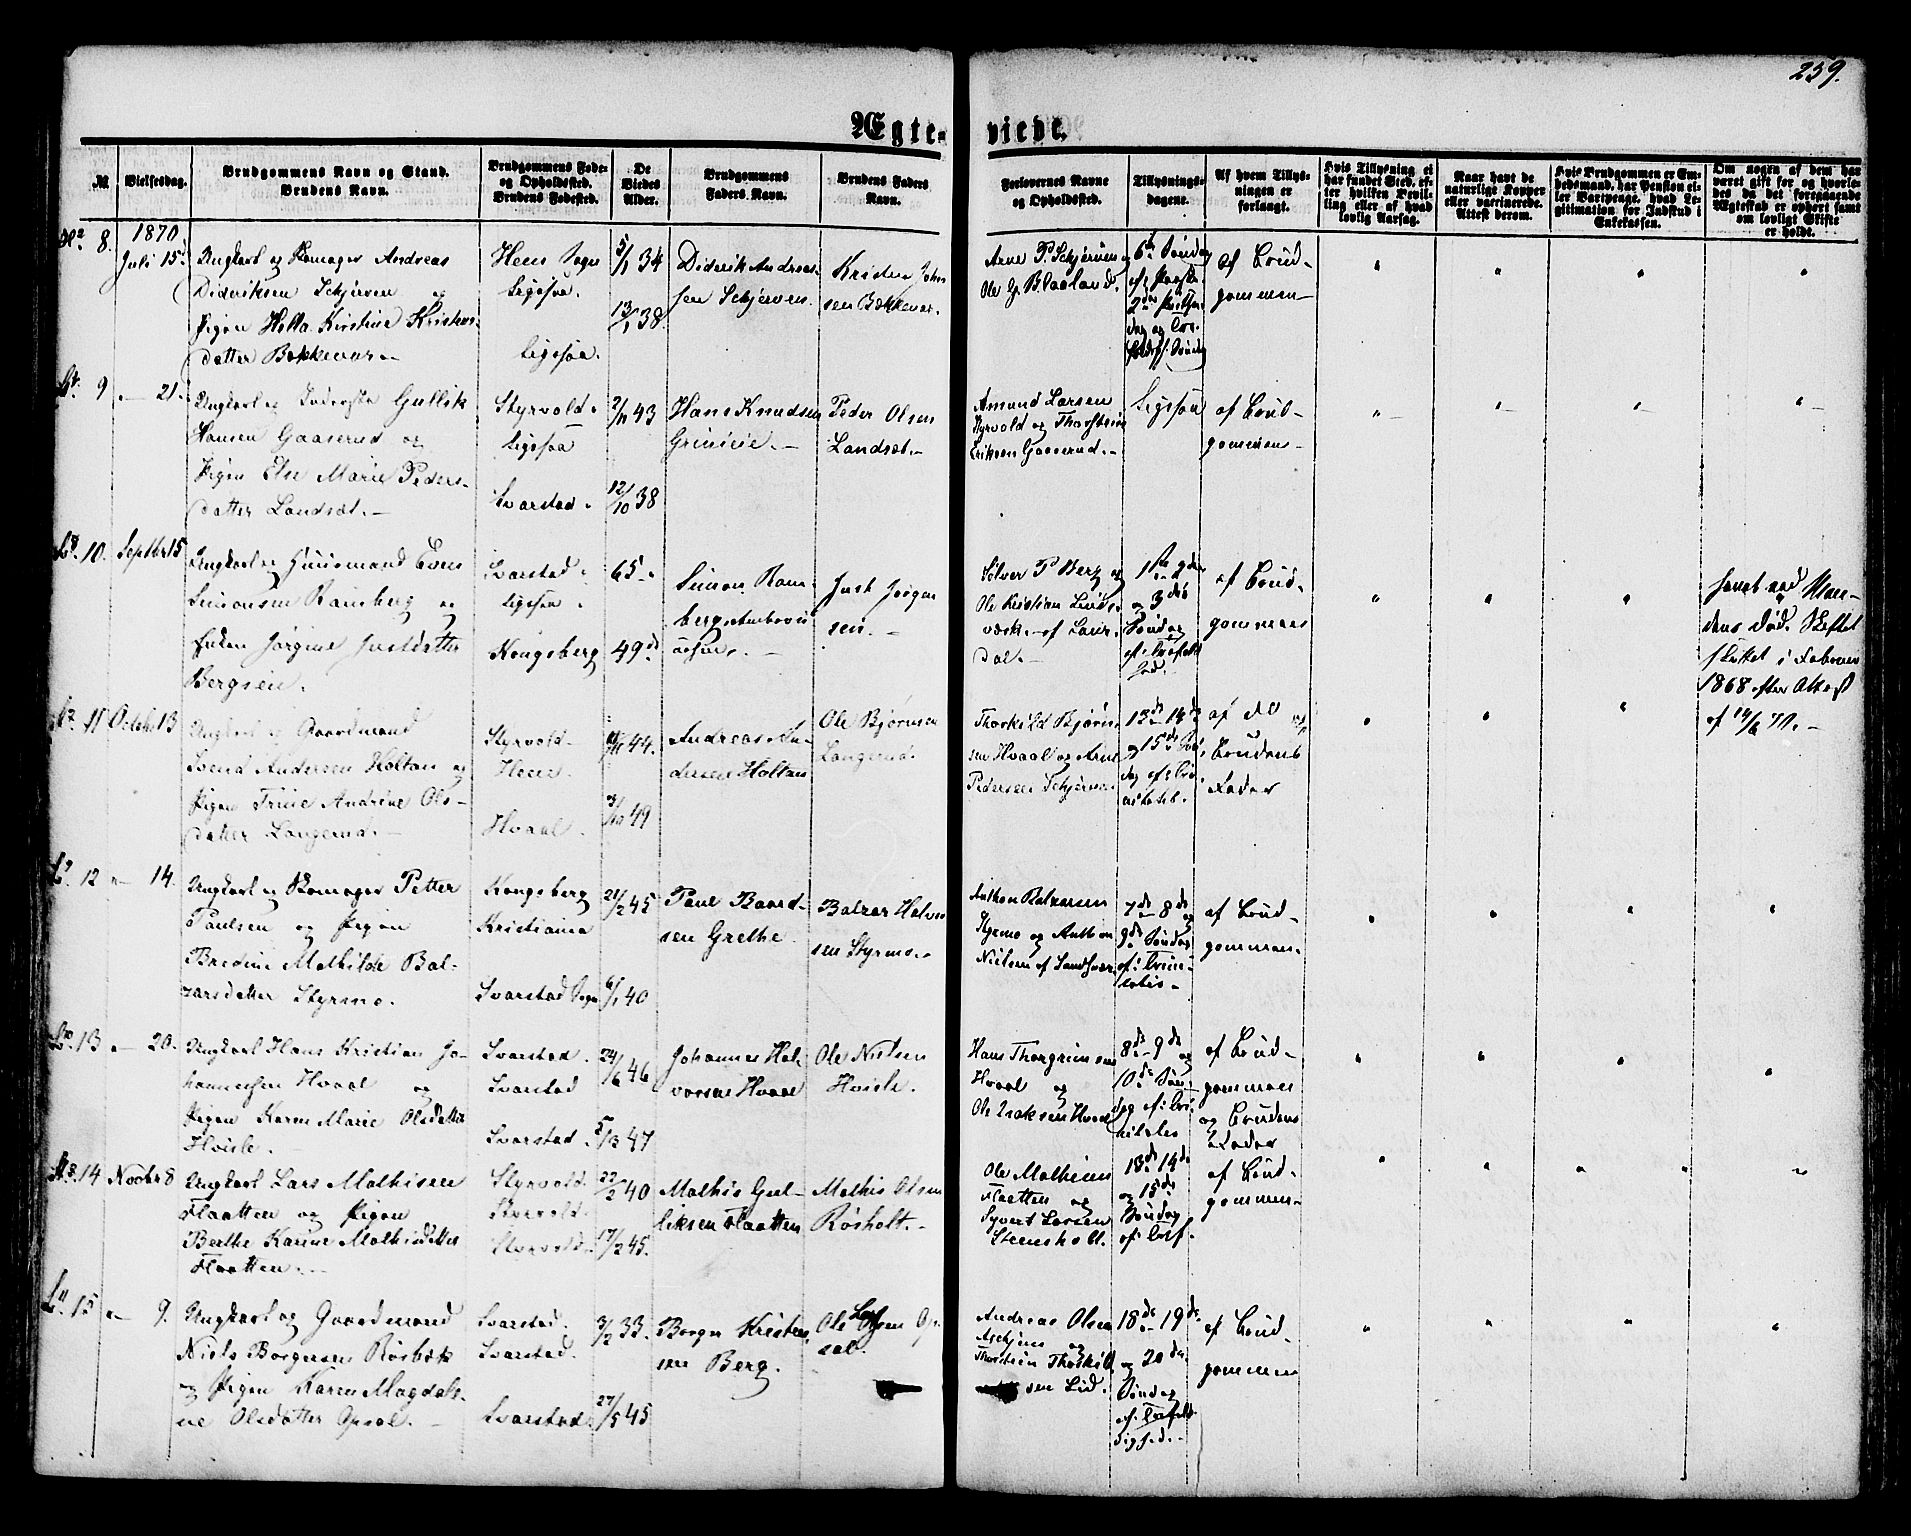 239.
Ægte-
viede.
№
Vielsesdag.
Brudgommens Navn og Stand.
Brudens Navn.
Brudgommens Føde-
og Opholdssted.
Brudens Fødested.
De
Viedes
Alder.
Brudgommens
Faders Navn.
Brudens Faders
Navn.
Forlovernes Navne
og Opholdssted.
Tillysnings-
dagene.
Af hvem Tillys-
ningen er
forlangt.
Hvis Tillysning ei
har fundet Sted, ef-
ter hvilken Bevil-
ling eller af hvad
lovlig Aarsag.
Naar havt de
naturlige Kopper
eller vaccinerede.
Attest derom.
Hvis Brudgommen er Em-
bedsmand, har Pension ei-
ler Vartpenge, hvad Le-
gitimation for Indskud i
Enkekassen.
Om nogen af dem har
været gift før og hvorle-
des da det foregaaende
Ægteskab er ophørt samt
om lovligt Skifte
er holdt.
8.
1870
Juli 15d
Ungkarl og Skomager Andreas
Didriksen Schjerven og
Pigen Hella Kirstine Kristens-
datter Bækkevar.
Hem Sogn
Ligesaa.
Ligesaa.
5/1 34
13/1 38.
Didrik Andreas-
sen Schjerven.
Kristen Johan
sen Bækkevar.
Arne P. Schjerven og
Ole G. Blaaland.
6te Søndag
af Brud-
gommen
9 21.
Ungkarl og Inderste Gullik
Hansen Gaaserud og
Pigen Else Marie Peders-
datter Landsæt.
Styrvold.
Ligesaa
Svarstad.
2/11 43
12/10 38
Hans Knudsen
Peder Olsen
Landsæt.
Amund Larsen
Styrvold og Thorstein
Eriksen Gaaserud.
Ligesaa
af Brud-
gommen
10. Septbr 15
Ungkarl og Huusmand Even
Simonsen Ramberg og
Enken Jørgine Justdatter
Bergsen.
Svarstad.
Ligesaa.
Kongsberg
65.
49de
Simon Ram-
berg
Just Jørgen
sen.
Sølver P. Berg og
Ole Kristian Lind-
værk. af Laur-
dal.
1ste 2den
og 3die
Søndag
af Brud-
gommen
Hævet ved Man-
dens Død. Skiftet
sluttet i Februar
1868 efter Attest
af 14/8 70.
11 Octobr 13
Ungkarl og Gaardmand
Svend Andersen Holtan og
Pigen Trine Andrine Ols-
datter Langerud.
Styrvold
Hem.
Hvaal.
44.
3/10 49
Andreas An-
dersen Holtan
Ole Bjørnsen
Langerud.
Thorkild Bjørn-
sen Hvaal og Arne
Pedersen Schjerven
13de 14de
og 15de Søn-
dag
af do
Brudens
Fader
12 14.
Ungkarl og Skomager Petter
Paulsen og Pigen
Bredine Mathilde Bal-
zarsdatter Styrmo.
Kongsberg
Kristiania
Svarstad Sogn
21/2 45
6/1 40
Paul Baard-
sen Grethe.
Balzar Halvor
sen Styrmo.
Anthon Balzersen
Styrmo og Anthon
Nielsen af Sandsvær
7de 8de og
9de Søndag
af Brud-
gommen.
13 20.
Ungkarl Hans Kristian Jo-
hannessen Hvaal og
Pigen Karen Marie Olsdatter
Hvisle.
Svarstad.
Svarstad
Svarstad.
24/6 46
5/3 47
Johannes Hal-
vorsen Hvaal
Ole Nielsen
Hvisle.
Hans Thorgrimsen
Hvaal og
Ole Isaksen Hvaal
8de 9de og
10de Søn-
dag
af Brud-
gommen
og Brudens
Fader
14 Novbr 8
Ungkarl Lars Mathisen
Flaatten og Pigen
Berthe Karine Mathisdatter
Flaatten.
Styrvold.
Styrvold.
Styrvold.
22/2 40
17/2 45.
Mathis Gul-
liksen Flaatten
Mathis Olsen
Røsholt.
Ole Mathisen
Flaatten og
Syvert Larsen
Steensholt.
13de 14de
og 15de
Søndag
af Brud-
gommen
15 9.
Ungkarl og Gaardmand
Niels Borgersen Røsbæk
og Pigen Karen Magdale-
ne Olsdatter Opsal.
Svarstad.
Svarstad.
Svarstad.
3/2 33.
27/5 45
Borger Kristen-
sen Berg.
Ole Larsen Op-
sal.
Andreas Olsen
Askjem og
Thorstein Thorkild
sen Lid.
18de 19de
og 20de
Søndag
af Brud-
gommen